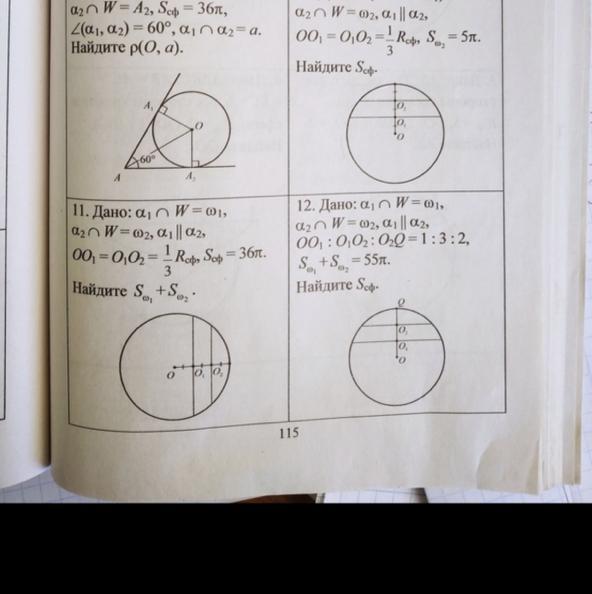 α₂ ∩ W = A₂, Sсф = 36π,
∠(α₁, α₂) = 60°, α₁ ∩ α₂ = a.
Найдите ρ(O, a).
A₁
O
60°
A
A₂
α₂ ∩ W = ω₂, α₁ || α₂,
OO₁ = O₁O₂ = 1/3 Rсф, Sω₂ = 5π.
Найдите Sсф.
O₂
O₁
O
11. Дано: α₁ ∩ W = ω₁,
α₂ ∩ W = ω₂, α₁ || α₂,
OO₁ = O₁O₂ = 1/3 Rсф, Sсф = 36π.
Найдите Sω₁ + Sω₂.
O
O₁
O₂
12. Дано: α₁ ∩ W = ω₁,
α₂ ∩ W = ω₂, α₁ || α₂,
OO₁ : O₁O₂ : O₂Q = 1 : 3 : 2,
Sω₁ + Sω₂ = 55π.
Найдите Sсф.
Q
O₂
O₁
O
115